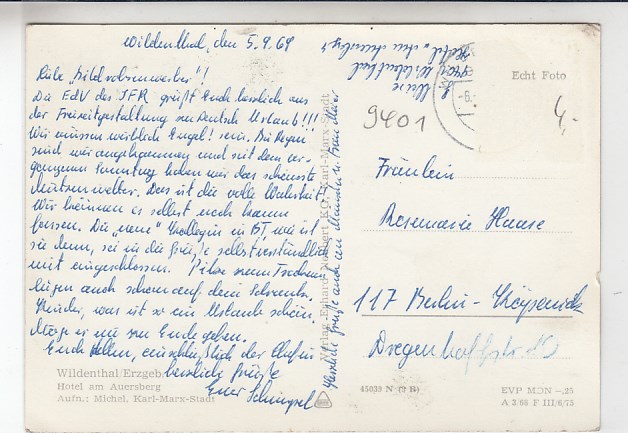 Wildenthal, den 5.9.69
Liebe
Die EdV des IFR grüßt Euch herzlich aus
der Freizeitgestaltung
Urlaub!!!
Wir müssen wirklich Engel! sein. Bei Regen
sind wir angekommen und seit dem ver-
gangenen Sonntag haben wir das schönste
Das ist die volle Wahrheit.
Wir können es selbst noch kaum
fassen. Die „neue“ Kollegin in BT, wie ist
sie denn, sei in die Grüße selbstverständlich
mit eingeschlossen. Pilze zum Trocknen
liegen auch schon auf dem Schrank.
Kinder, was ist so ein Urlaub schön.
Möge er nie zu Ende gehen.
Euch allen, einschließlich der Chefin
herzliche Grüße
Eure
Wildenthal/Erzgeb
Hotel am Auersberg
Aufn.: Michel, Karl-Marx-Stadt
Verlag Erhard Neubert KG, Karl-Marx-Stadt
Herzliche Grüße auch an
9401 Wildenthal
Hotel
Echt Foto
9401
4,-
Fräulein
Rosemarie Haase
117 Berlin-Köpenick
45039 N (7 B)
EVP MDN -,25
A 2 66 F III/6/75